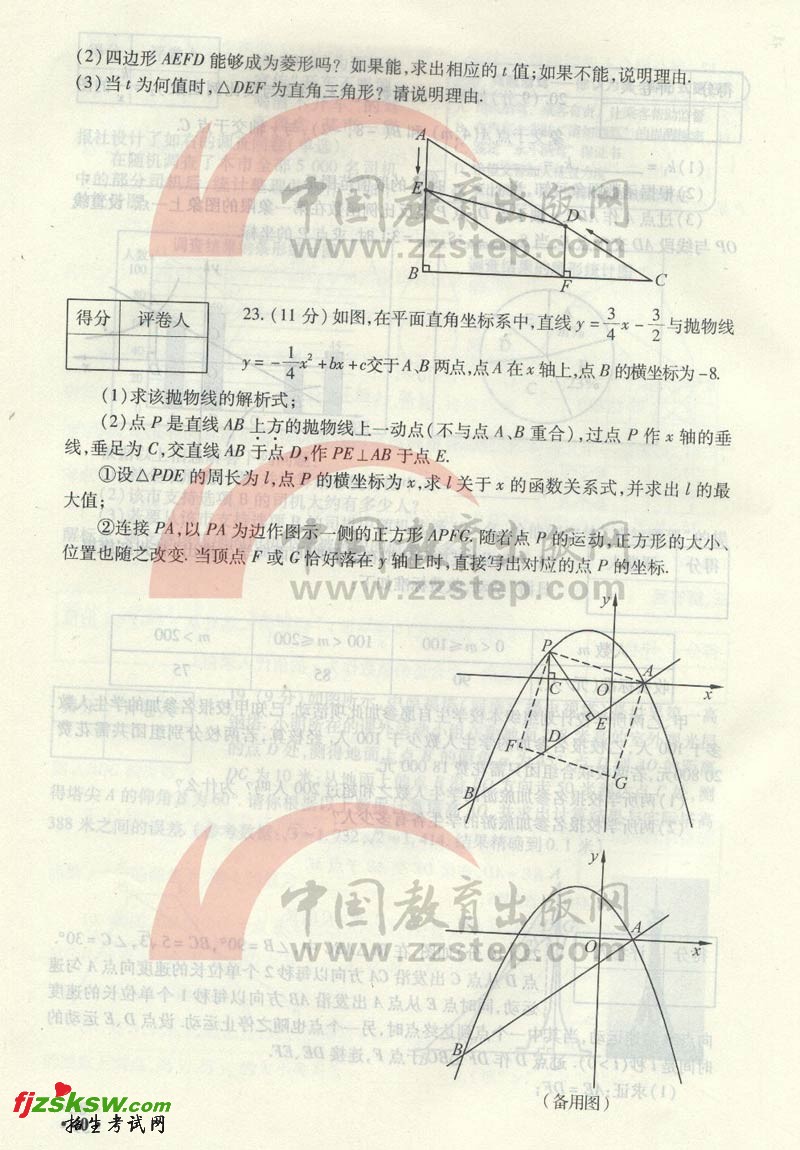 (2)四边形 AEFD 能够成为菱形吗? 如果能,求出相应的 t 值;如果不能,说明理由.
(3)当 t 为何值时,△DEF 为直角三角形? 请说明理由.
A
E
D
B
F
C
中国教育出版网
www.zzstep.com
得分 评卷人
23. (11 分)如图,在平面直角坐标系中,直线 y = 3/4 x - 3/2 与抛物线
y = - 1/4 x² + bx + c交于 A、B 两点,点 A 在 x 轴上,点 B 的横坐标为 -8.
(1)求该抛物线的解析式;
(2)点 P 是直线 AB 上方的抛物线上一动点(不与点 A、B 重合),过点 P 作 x 轴的垂
线,垂足为 C,交直线 AB 于点 D,作 PE⊥AB 于点 E.
①设△PDE 的周长为 l,点 P 的横坐标为 x,求 l 关于 x 的函数关系式,并求出 l 的最
大值;
②连接 PA,以 PA 为边作图示一侧的正方形 APFG. 随着点 P 的运动,正方形的大小、
位置也随之改变. 当顶点 F 或 G 恰好落在 y 轴上时,直接写出对应的点 P 的坐标.
中国教育出版网
www.zzstep.com
y
P
A
C
O
x
E
D
F
G
B
中国教育出版网
www.zzstep.com
y
O
A
x
B
(备用图)
fjzsksw.com
招生考试网